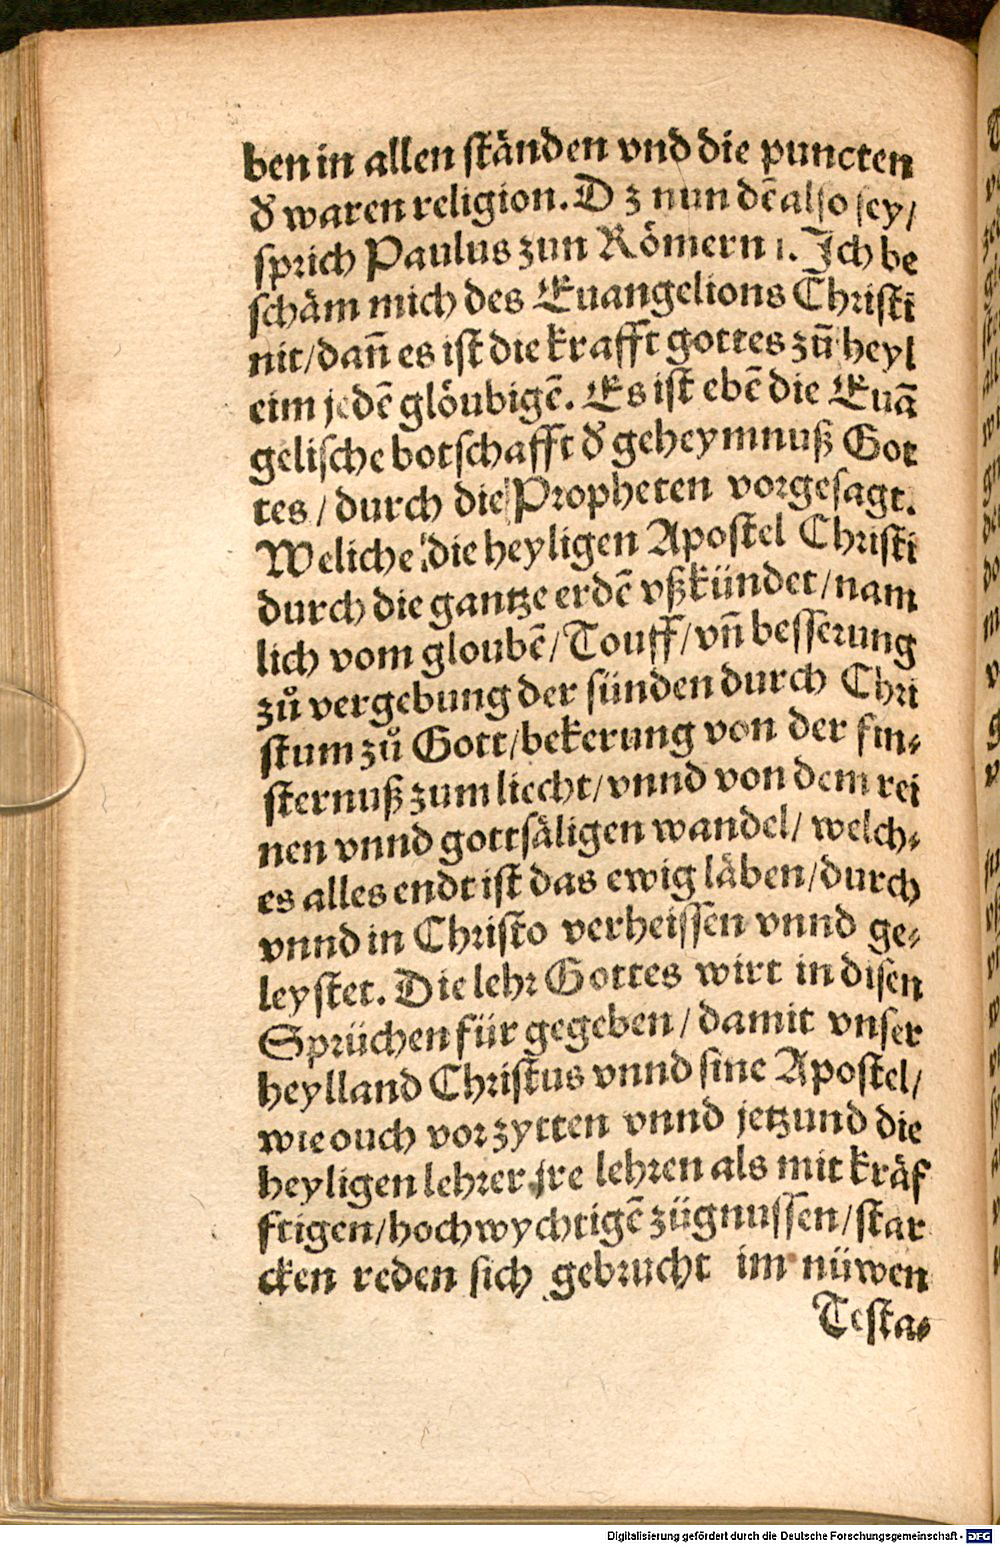 ben in allen ständen vnd die puncten
d̕ waren religion. Dz nun dē also sey/
sprich Paulus zun Römern 1. Ich be
schäm mich des Euangelions Christi
nit/dañ es ist die krafft gottes zů heyl
eim jedē glöubigē. Es ist ebē die Euā
gelische botschafft d̕ geheymnuß Got
tes/durch die Propheten vorgesagt.
Weliche die heyligen Apostel Christi
durch die gantze erdē vßkündet/nam
lich vom gloubē/Touff/vñ besserung
zů vergebung der sünden durch Chri
stum zů Gott/bekerung von der fin⸗
sternuß zum liecht/vnnd von dem rei
nen vnnd gottsäligen wandel/welch⸗
es alles endt ist das ewig läben/durch
vnnd in Christo verheissen vnnd ge⸗
leystet. Die lehr Gottes wirt in disen
Sprüchen für gegeben/damit vnser
heylland Christus vnnd sine Apostel/
wie ouch vor zytten vnnd jetzund die
heyligen lehrer jre lehren als mit kräf
ftigen/hochwychtigē zügnussen/star
cken reden sich gebrucht im nüwen
Testa⸗
Digitalisierung gefördert durch die Deutsche Forschungsgemeinschaft - DFG